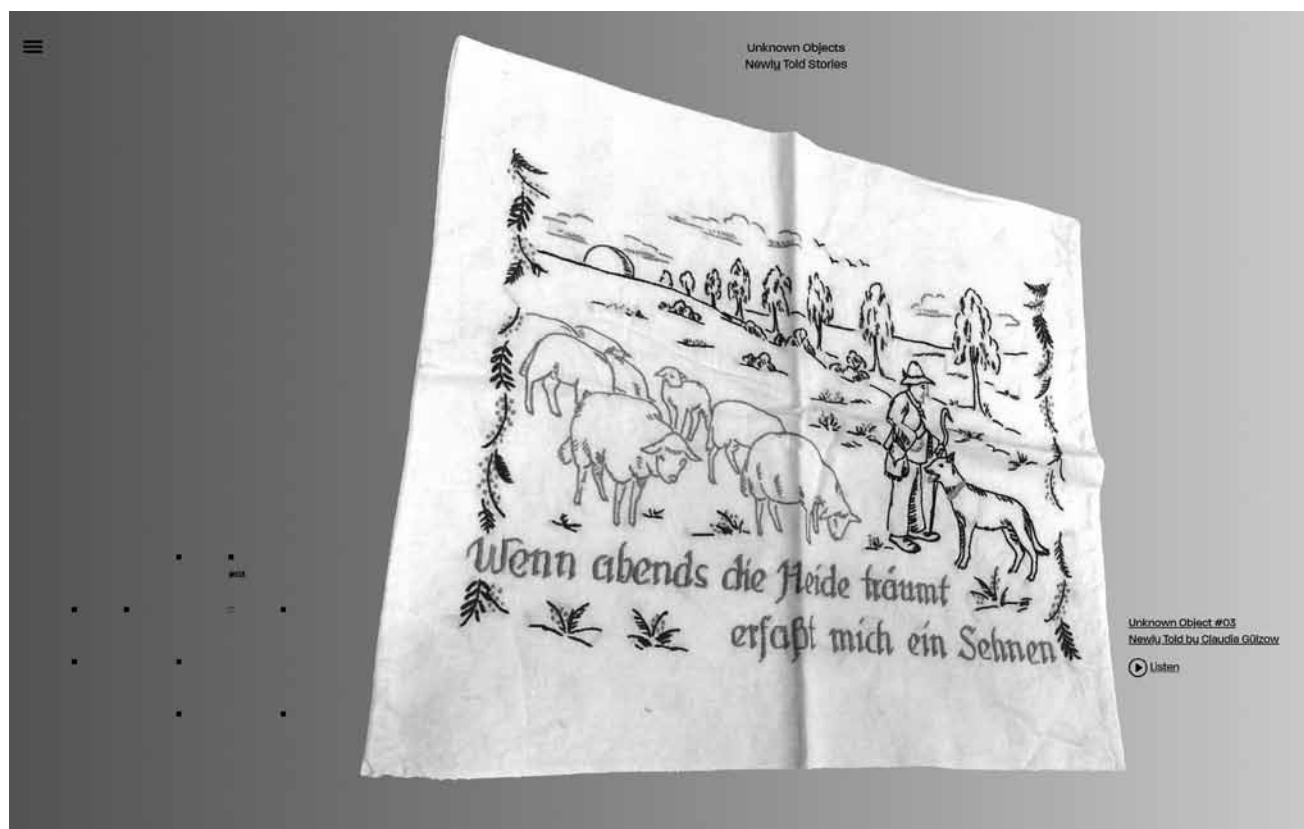 Unknown Objects
Newly Told Stories
Wenn abends die Heide träumt
erfaßt mich ein Sehnen
#03
Unknown Object #03
Newly Told by Claudia Gülzow
Listen